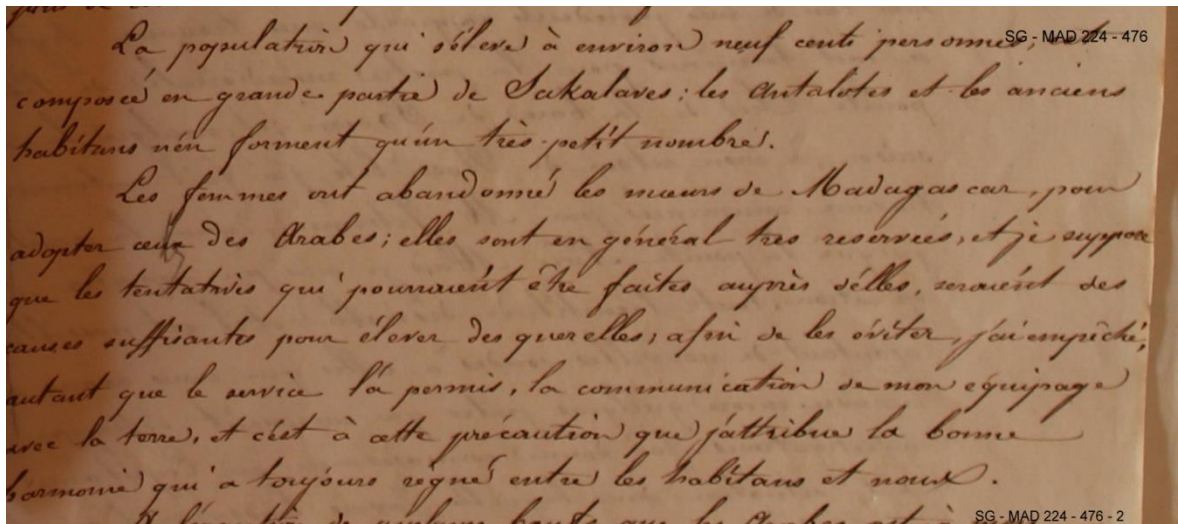 La population qui s'éleve à environ neuf cents personnes, est
SG - MAD 224 - 476
composée en grande partie de Sakalaves; les Antalotes et les anciens
habitans n'en forment qu'un très-petit nombre.
Les femmes ont abandonné les mœurs de Madagascar, pour
adopter ceux des Arabes; elles sont en général très reservées, et je suppose
que les tentatives qui pourraient être faites auprès d'elles, seraient des
causes suffisantes pour élever des querelles; afin de les éviter, j'ai empêché,
autant que le service l'a permis, la communication de mon équipage
avec la terre, et c'est à cette précaution que j'attribue la bonne
harmonie qui a toujours régné entre les habitans et nous.
de quelques que les Arabes ont à
SG - MAD 224 - 476 - 2